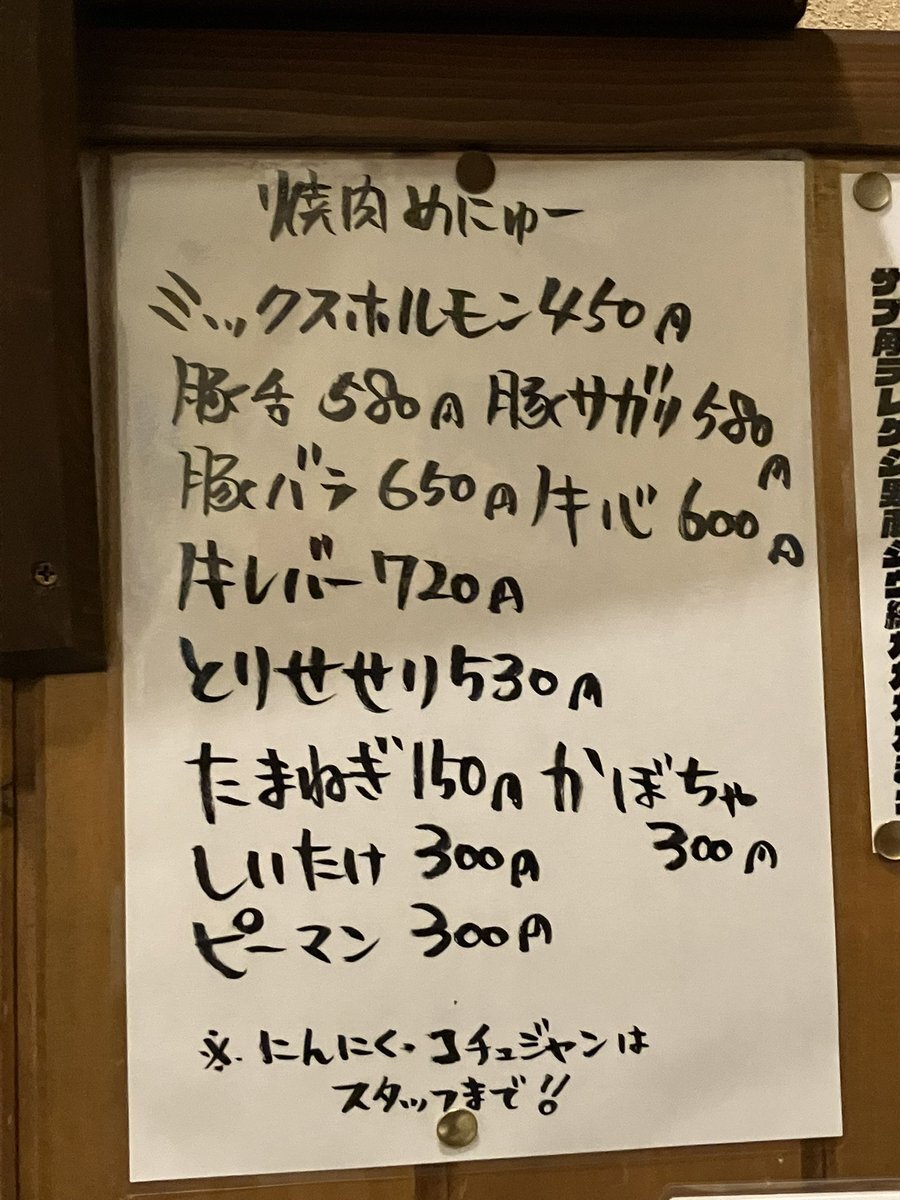 焼肉めにゅー
ミックスホルモン450円
豚舌 580円 豚サガリ580円
豚バラ 650円 牛心 600円
牛レバー720円
とりせせり530円
たまねぎ150円 かぼちゃ
しいたけ 300円 300円
ピーマン 300円
※.にんにく・コチュジャンは
スタッフまで!!